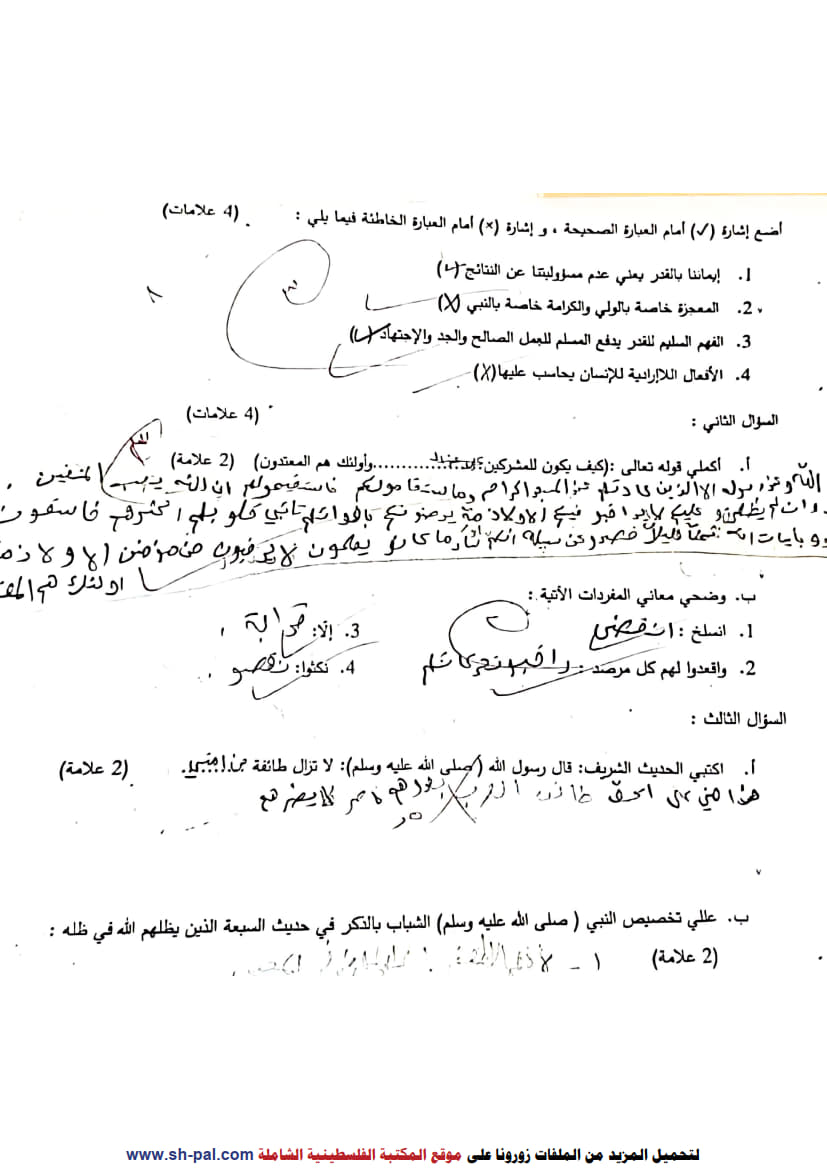 أضع إشارة (✓) أمام العبارة الصحيحة ، و إشارة (×) أمام العبارة الخاطئة فيما يلي : (4 علامات)
1. إيماننا بالقدر يعني عدم مسؤوليتنا عن النتائج (✓)
2. المعجزة خاصة بالولي والكرامة خاصة بالنبي (X)
3. الفهم السليم للقدر يدفع المسلم للعمل الصالح والجد والإجتهاد (✓)
4. الأفعال اللاإرادية للإنسان يحاسب عليها (X)
السؤال الثاني : (4 علامات)
أ. أكملي قوله تعالى :(كيف يكون للمشركين عهد عند............وأولئك هم المعتدون) (2 علامة)
الله وعند رسوله الا الذين عاهدتم عند المسجد الحرام وما ستقاموا لكم فاستقيموا لهم ان الله يحب المتقين
وان يظهرو عليكم لا يرقبو فيكم الا ولا ذمة يرضونكم بافواههم وتابى قلوبهم اكثرهم فاسقون
بايات الله ثمنا قليلا فصدو عن سبيله انهم ساء ما كانو يعملون لا يرقبون في مؤمن الا ولا ذمة
اولئك هم
ب. وضحي معاني المفردات الأتية :
1. انسلخ : انقضى
3. إلّا: قرابة
2. واقعدوا لهم كل مرصد : راقبو تحركاتهم
4. نكثوا: نقضو
السؤال الثالث :
أ. اكتبي الحديث الشريف: قال رسول الله (صلى الله عليه وسلم): لا تزال طائفة من امتي. (2 علامة)
على الحق لا يضرهم
ب. عللي تخصيص النبي ( صلى الله عليه وسلم) الشباب بالذكر في حديث السبعة الذين يظلهم الله في ظله :
(2 علامة)
١ -
لتحميل المزيد من الملفات زورونا على موقع المكتبة الفلسطينية الشاملة www.sh-pal.com